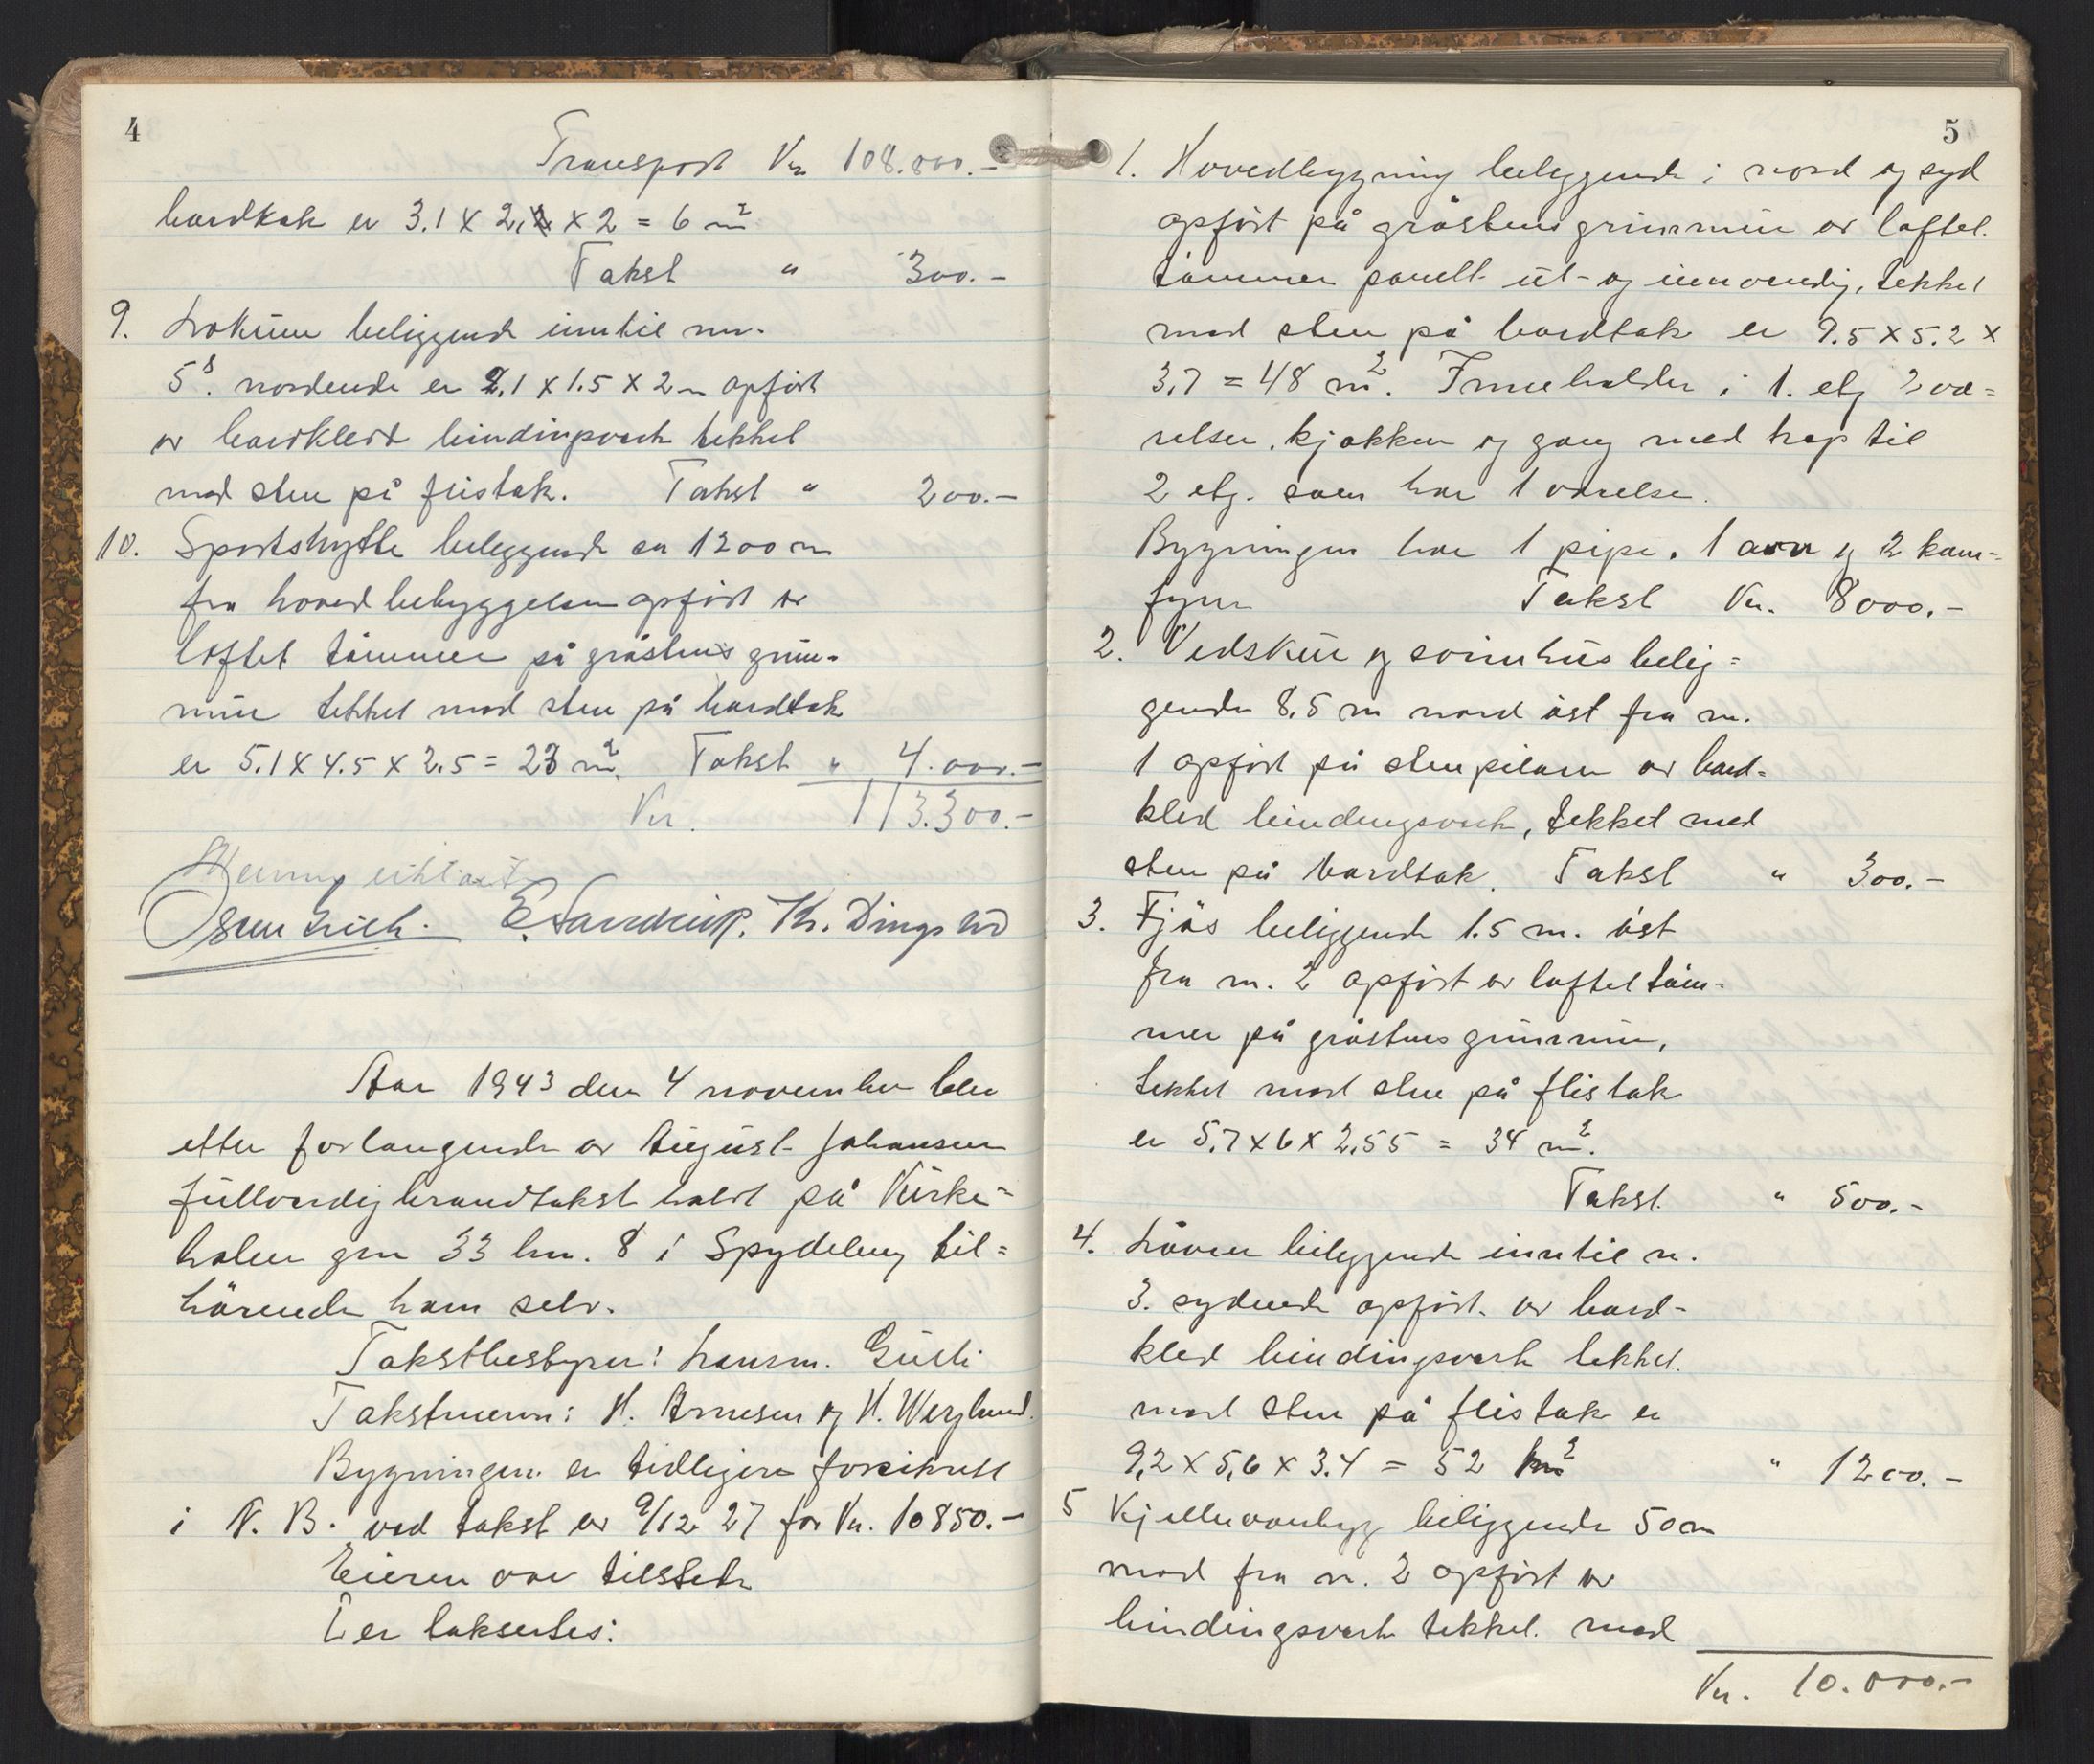 4
Transport Kr. 108.800.-
bordtak er 3.1 x 2,2 x 2 = 6 m²
Takst " 300.-
9. Lokum beliggende inntil nr.
5⁸. nordende er 2.1 x 1.5 x 2 m opført
av bordkledt bindingverk tekket
med sten på flistak. Takst " 200.-
10. Sportshytte beliggende ca 1200 m
fra hovedbebyggelsen opført av
loftet tømmer på gråstens grun-
mur tekket med sten på bordtak
er 5.1 x 4.5 x 2.5 = 23 m². Takst " 4.000.-
Kr. 113.300.-
E. Sandrup. Kr. Dingstad
Aar 1943 den 4 november ble
etter forlangende av August Johansen
fullverdig branntakst holdt på Kirke-
halen gnr 33 bnr. 8 i Spydeberg til-
hørende ham selv.
Takstbestyrer: Lensm. Gulli
Takstmenn: H. Arnesen og H. Wegland.
Bygningen er tidligere forsikret
i N. B. ved takst av 9/12 27 for Kr. 10850.-
Eieren var tilstede
Der taksertes:
5
1. Hovedbygning beliggende i nord og syd
opført på gråstens grunnmur av loftet
tømmer panelt ut- og innvendig, tekket
med sten på bordtak er 9.5 x 5.2 x
3,7 = 48 m². Inneholder i 1. etg 2 væ-
relser, kjøkken og gang med trap til
2 etg. som har 1 værelse.
Bygningen har 1 pipe, 1 ovn og 2 kom-
fyrer Takst Kr. 8000.-
2. Vedskur og svinehus belig-
gende 8,5 m nord øst fra nr.
1 opført på stenpilarer av bord-
kled bindingsverk, tekket med
sten på bordtak. Takst " 300.-
3. Fjøs beliggende 1.5 m. øst
fra nr. 2 opført av loftet tøm-
mer på gråstens grunnmur,
tekket med sten på flistak
er 5,7 x 6 x 2,55 = 34 m².
Takst. " 500.-
4. Låven beliggende inntil nr.
3. sydende opført av bord-
kled bindingsverk tekket
med sten på flistak er
9,2 x 5,6 x 3.4 = 52 m² " 1200.-
5 Kjelleroverbygg beliggende 50 m
nord fra nr. 2 opført av
bindingsverk tekket med
Kr. 10.000.-